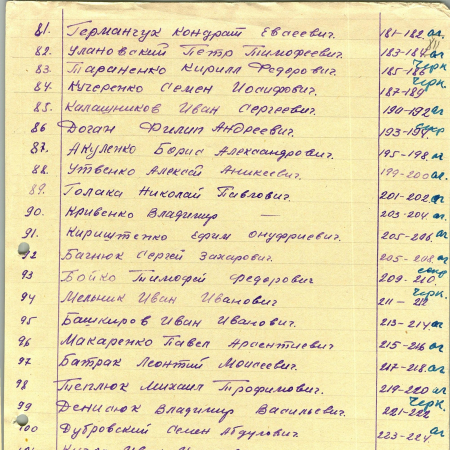 81. Германчук Кондрат Евсеевич. 181-182 аг.
82. Улановский Петр Тимофеевич. 183-184 аг
83. Тараненко Кирилл Федорович. 185-186 Черк.
84. Кучеренко Семен Иосифович. 187-189 Черк.
85. Калашников Иван Сергеевич. 190-192 аг
86 Доган Филип Андреевич. 193-194.
87. Акуленко Борис Александрович. 195-198. аг
88. Утвенко Алексей Аникеевич. 199-200 аг.
89. Голака Николай Павлович. 201-202 аг
90. Кривенко Владимир — 203-204 аг.
91. Кириштенко Ефим Онуфриевич. 205-206. аг
92 Багнюк Сергей Захарович. 205-208 аг
93 Бойко Тимофей Федорович 209-210.
94 Мельник Иван Иванович 211- 212 Черк.
95 Башкиров Иван Иванович. 213-214 аг
96 Макаренко Павел Арсентиевич 215-216 аг
97 Батрак Леонтий Моисеевич. 217-218. аг
98 Теплюк Михаил Трофимович. 219-220 аг
99 Денисюк Владимир Васильевич. 221-222 Черк.
100 Дубровский Семен Абдулович. 223-224 аг